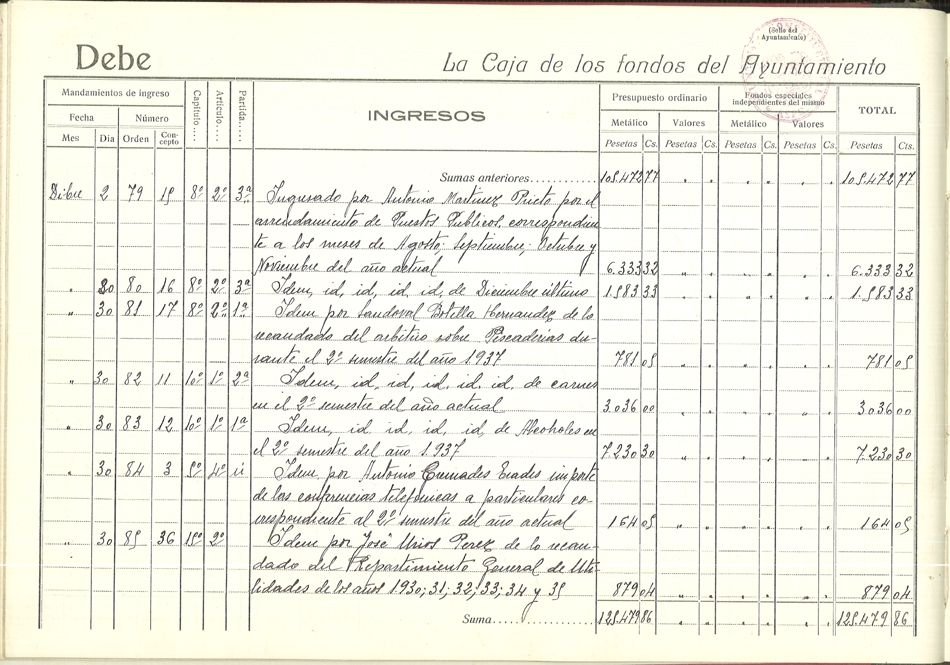 (Sello del
Ayuntamiento)
Debe La Caja de los fondos del Ayuntamiento
Mandamientos de ingreso Capítulo.... Artículo.... Partida.... INGRESOS Presupuesto ordinario Fondos especiales independientes del mismo TOTAL
Fecha Número Metálico Valores Metálico Valores
Mes Día Orden Concepto Pesetas Cs. Pesetas Cs. Pesetas Cs. Pesetas Cs. Pesetas Cts.
Sumas anteriores............ 105.472 77 " " " " " " 105.472 77
Dibre 2 79 15 8º 2º 3ª Ingresado por Antonio Martinez Prieto por el
arrendamiento de Puestos Publicos, correspondien-
te a los meses de Agosto; Septiembre; Octubre y
Noviembre del año actual 6.333 32 " " " " " " 6.333 32
" 30 80 16 8º 2º 3ª Idem, id, id, id, id, de Diciembre último 1.583 33 " " " " " " 1.583 33
" 30 81 17 8º 2º 1ª Idem por Sandoval Botella Hernandez de lo
recaudado del arbitrio sobre Pescaderias du-
rante el 2º semestre del año 1937 781 05 781 05
" 30 82 11 10º 1º 2ª Idem, id, id, id, id, id, de carnes
en el 2º semestre del año actual 3.036 00 " " " " " " 3.036 00
" 30 83 12 10º 1º 1ª Idem, id. id. id, id, id, de Alcoholes en
el 2º semestre del año 1.937 7.230 30 " " " " " " 7.230 30
" 30 84 3 5º 4º ú Idem por Antonio Eradas importe
de las conferencias telefónicas a particulares co-
rrespondiente al 2º semestre del año actual 164 05 " " " " " " 164 05
" 30 85 36 15º 2º Idem por José Urios Perez de lo recau-
dado del Repartimiento General de Uti-
lidades de los años 1.930; 31; 32; 33; 34 y 35 879 04 " " " " " " 879 04
Suma................... 125.479 86 " " " " " " 125.479 86